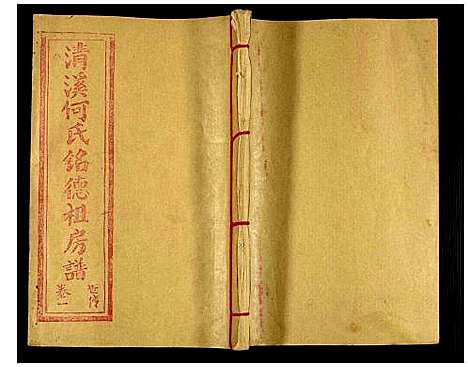 清溪何氏銘德祖房譜
卷一